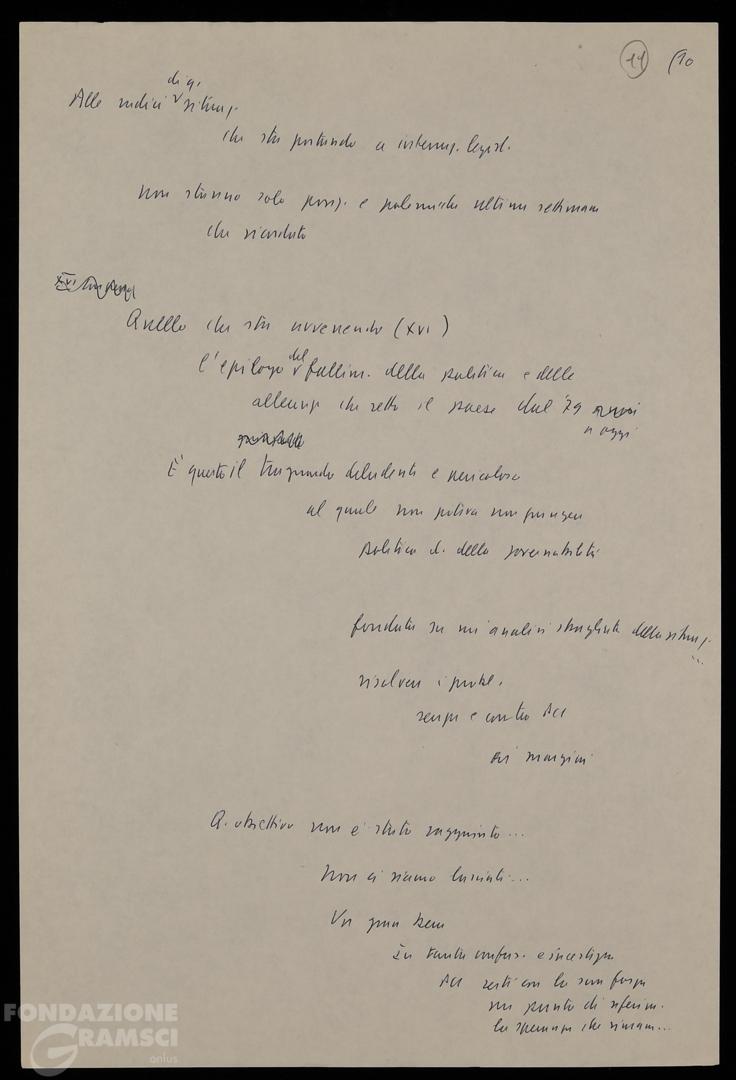 11 (10
di q.
Alle radici situaz.
che sta portando a interruz. legisl.
Non stanno solo posiz. e polemiche ultime settimane
che ricordate
XVI
Quello che sta avvenendo (XVI)
del
l'epilogo fallim. della politica e delle
alleanze che retto il paese dal '79
a oggi
È questo il traguardo deludente e pericoloso
al quale non poteva non giungere
politica d. della governabilità
fondata su un'analisi sbagliata della situaz.
...
risolvere i probl.
senza e contro PCI
ai margini
Q. obiettivo non è stato raggiunto...
Non ci siamo lasciati...
Va gran bene
In tanta confus. e incertezza
PCI resti con la sua forza
un punto di riferim.
la speranza che rimane...
FONDAZIONE
GRAMSCI
onlus